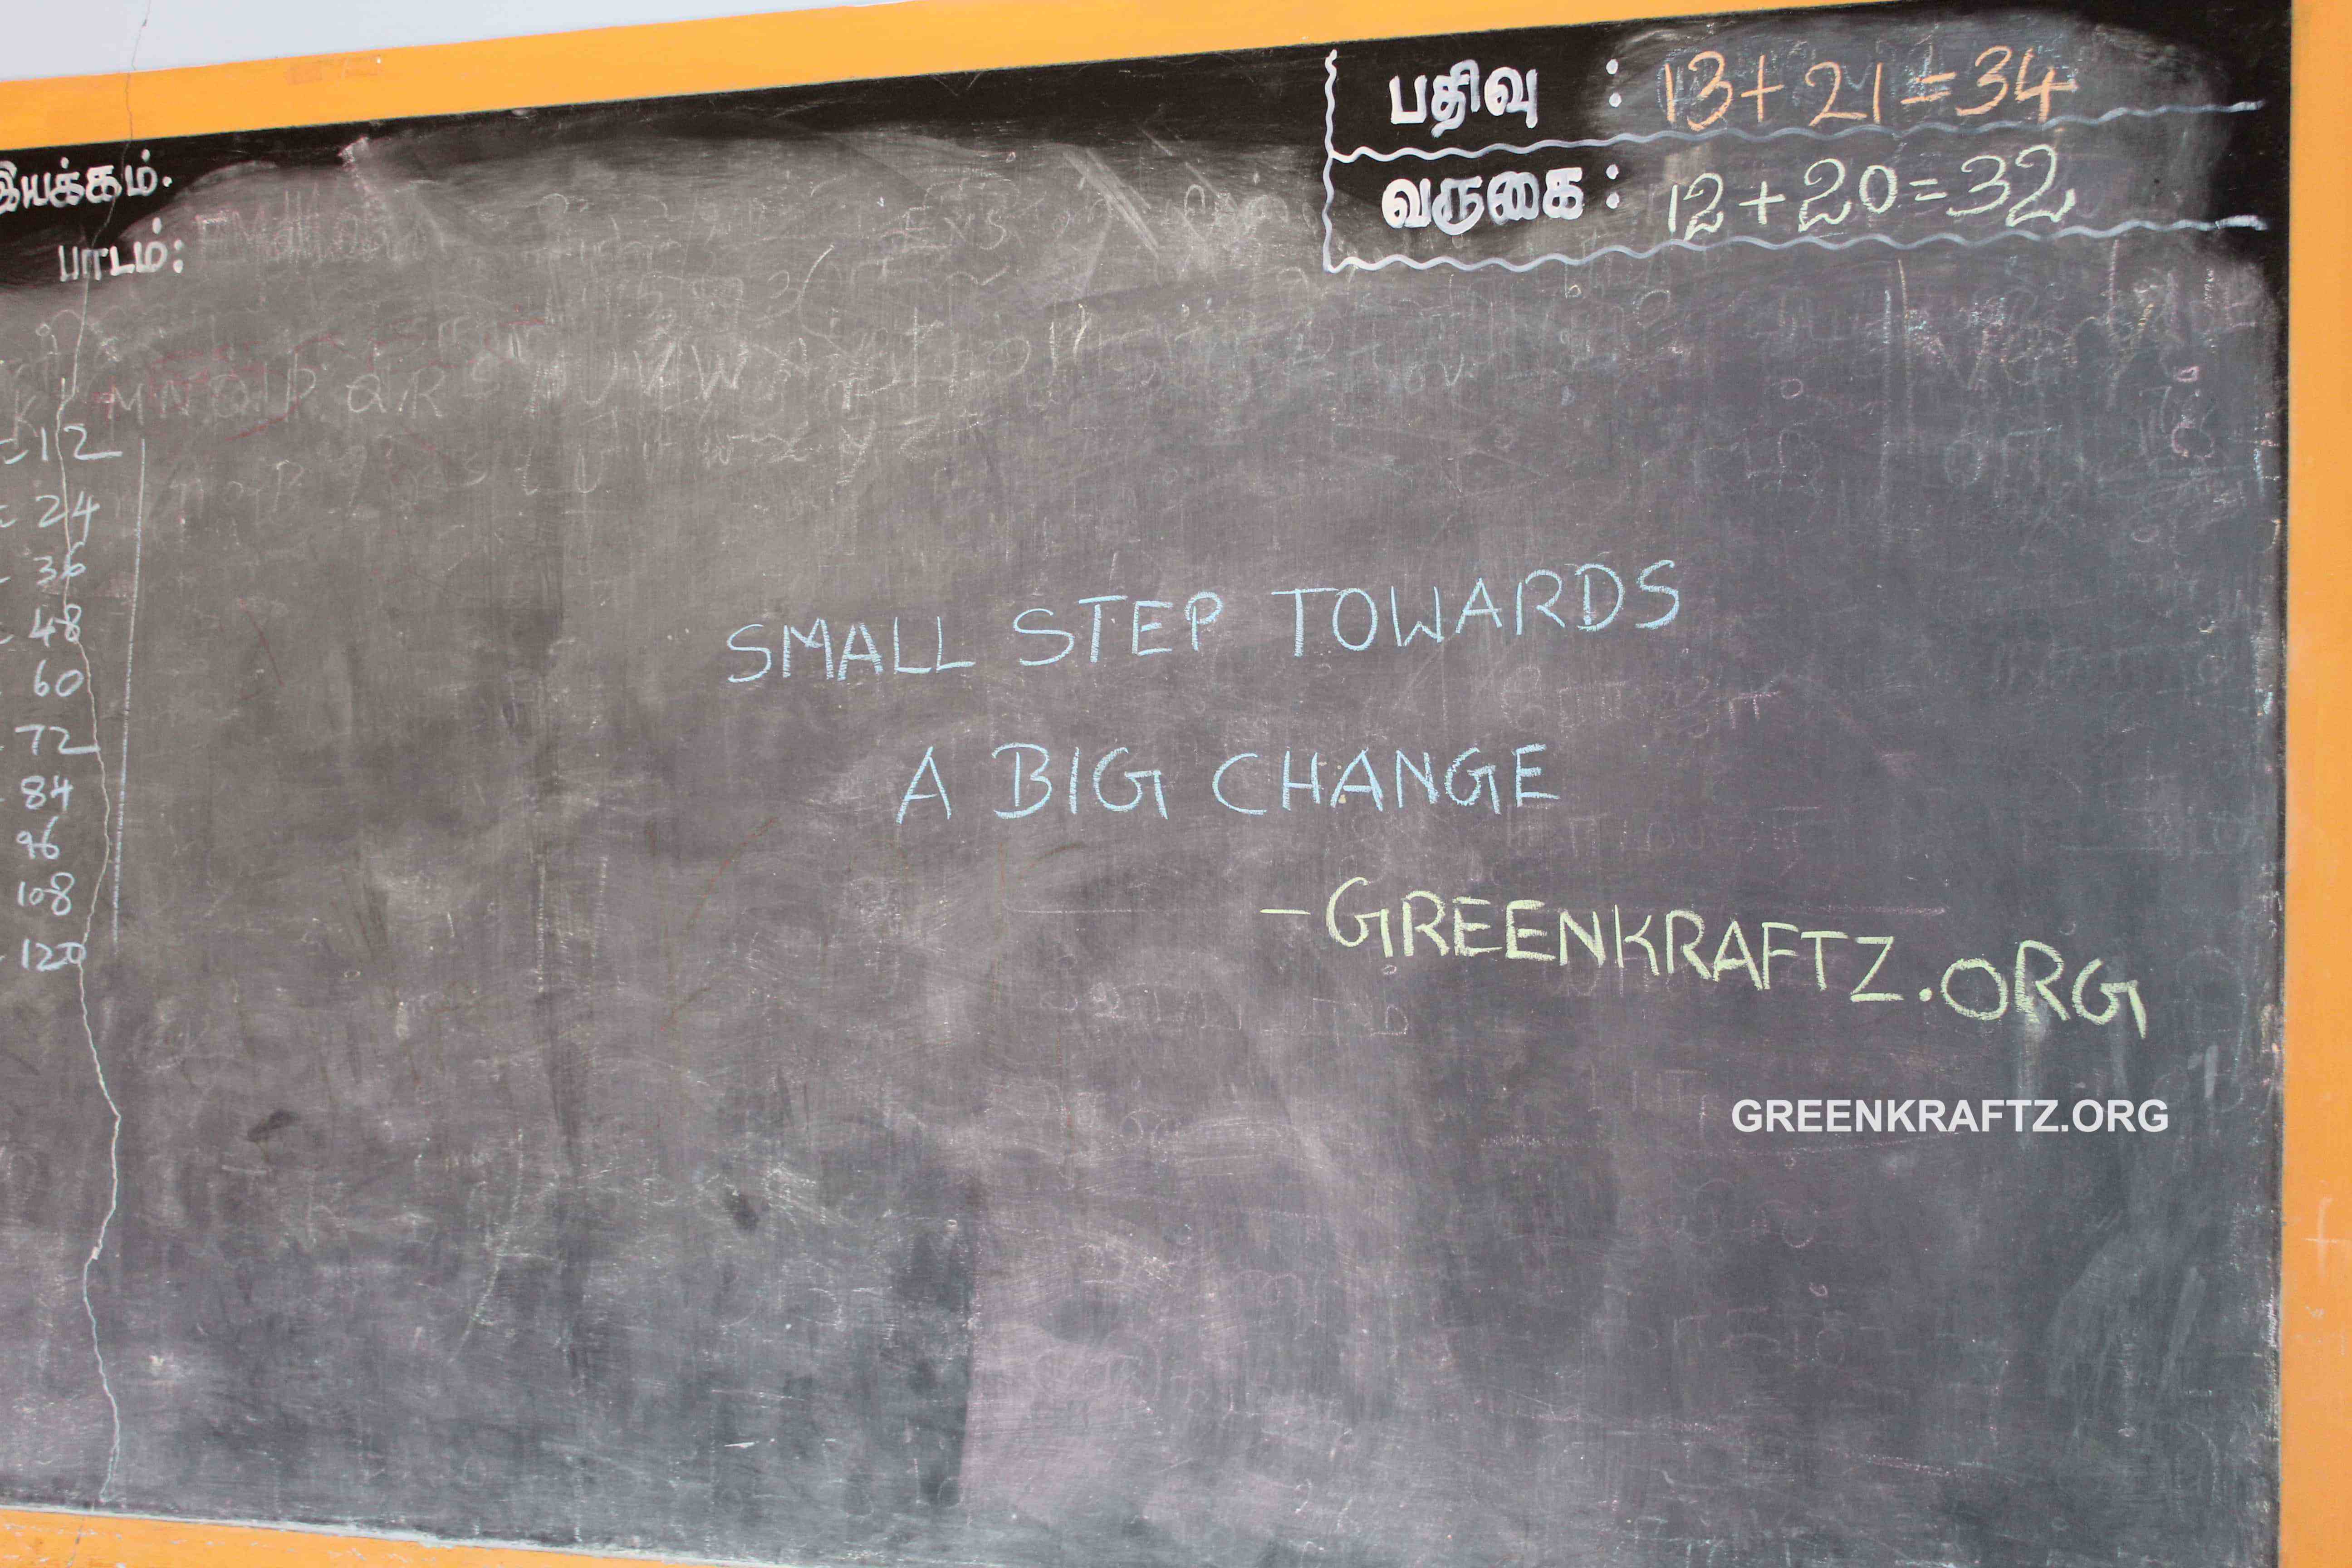 இயக்கம்.
பாடம்:
பதிவு : 13+21=34
வருகை : 12+20=32
=12
24
36
48
60
72
84
96
108
120
SMALL STEP TOWARDS
A BIG CHANGE
- GREENKRAFTZ.ORG
GREENKRAFTZ.ORG